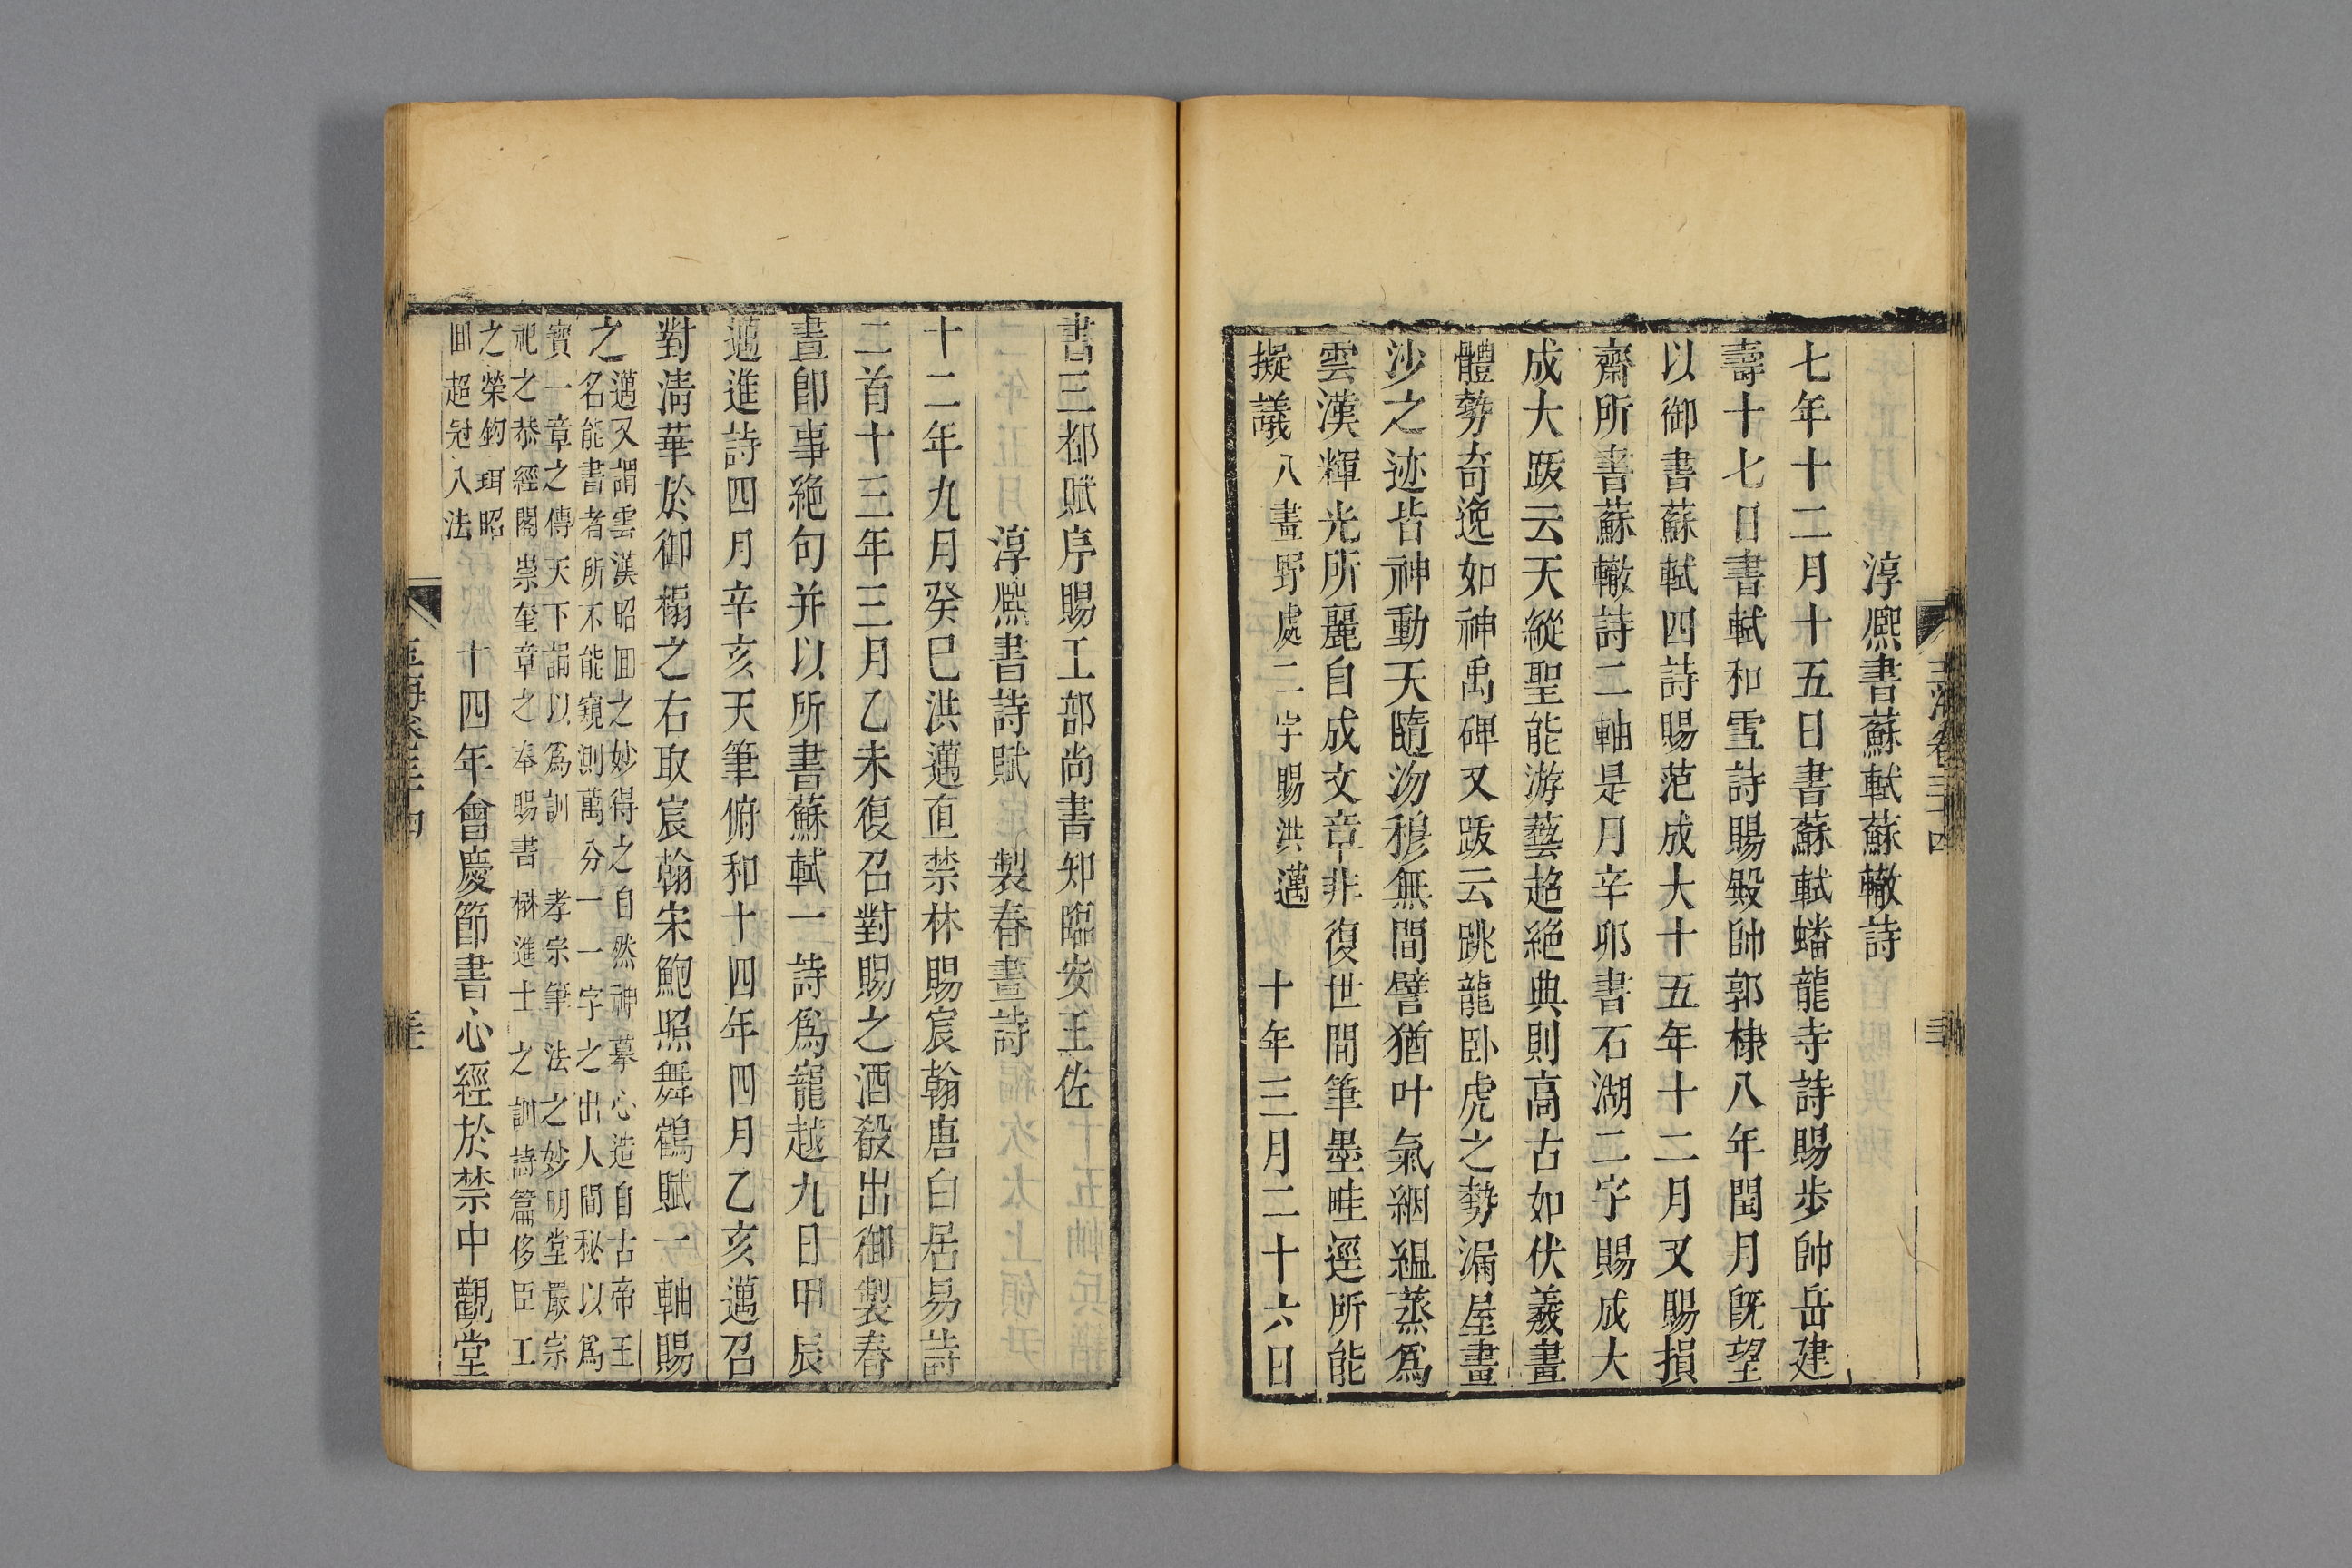 玉海卷三十四
淳熙書蘇軾蘇轍詩
七年十二月十五日書蘇軾蟠龍寺詩賜步帥岳建
壽十七日書軾和雪詩賜殿帥郭棣八年閏月旣望
以御書蘇軾四詩賜范成大十五年十二月又賜損
齋所書蘇轍詩二軸是月辛卯書石湖二字賜成大
成大跋云天縱聖能游藝超絶典則高古如伏羲畫
體勢奇逸如神禹碑又跋云跳龍臥虎之勢漏屋畫
沙之迹皆神動天隨沕穆無間譬猶叶氣絪緼蒸爲
雲漢輝光所麗自成文章非復世間筆墨畦逕所能
擬議八畫野處二字賜洪邁 十年三月二十六日
書三都賦序賜工部尚書知臨安王佐
淳熙書詩賦 製春晝詩
十二年九月癸巳洪邁直禁林賜宸翰唐白居易詩
二首十三年三月乙未復召對賜之酒殽出御製春
晝卽事絶句并以所書蘇軾一詩爲寵越九日甲辰
邁進詩四月辛亥天筆俯和十四年四月乙亥邁召
對淸華於御榻之右取宸翰宋鮑照舞鶴賦一軸賜
之邁又謂雲漢昭囬之妙得之自然神摹心造自古帝王
名能書者所不能窺測萬分一一字之出人間秘以爲
寶一章之傳天下誦以爲訓 孝宗筆法之妙明堂嚴宗
祀之恭經閣崇奎章之奉賜書楙進士之訓詩篇侈臣工
之榮鉤珥昭
囬超冠八法 十四年會慶節書心經於禁中觀堂